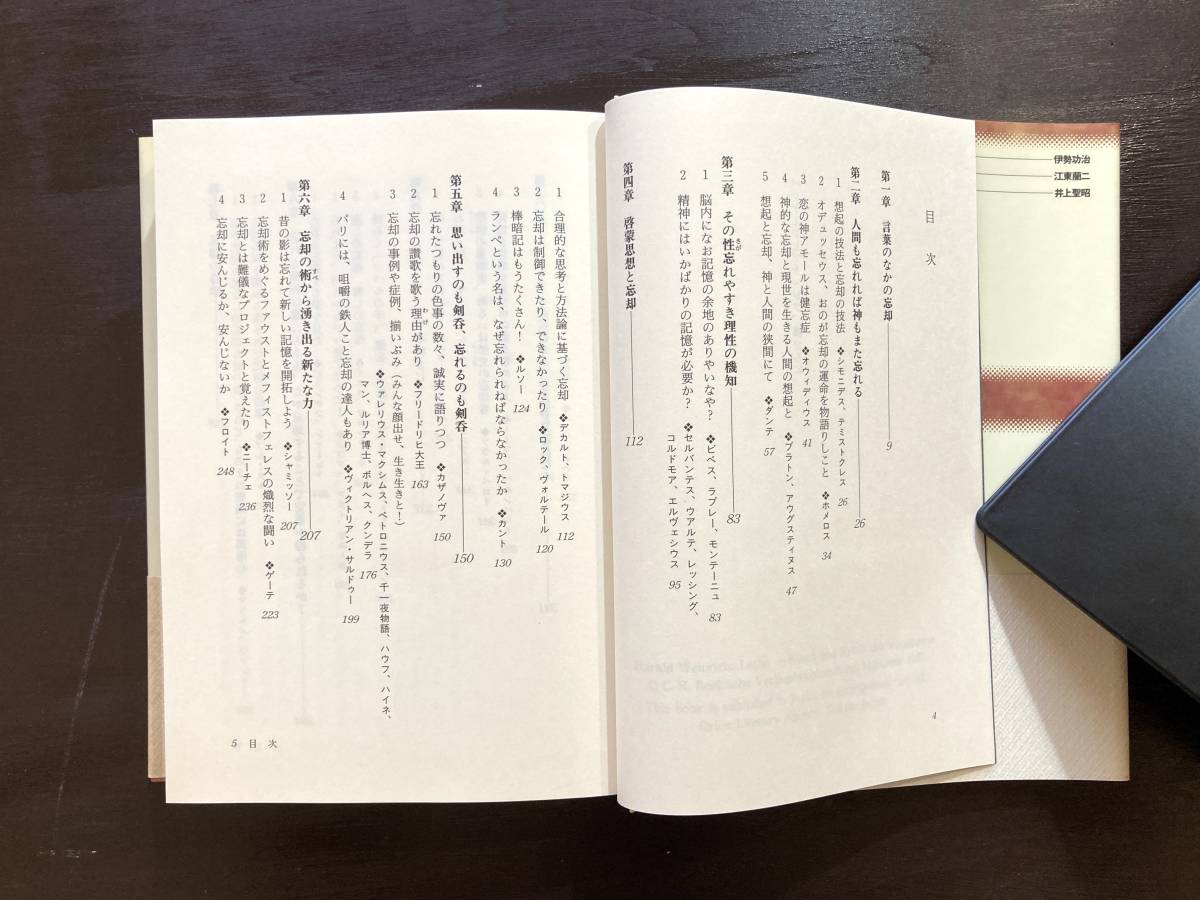 伊勢功治
江東蘭二
井上聖昭
目次
第一章 言葉のなかの忘却 9
第二章 人間も忘れれば神もまた忘れる 26
1 想起の技法と忘却の技法 ❖シモニデス、テミストクレス 26
2 オデュッセウス、おのが忘却の運命を物語りしこと ❖ホメロス 34
3 恋の神アモールは健忘症 ❖オウィディウス 41
4 神的な忘却と現世を生きる人間の想起と ❖プラトン、アウグスティヌス 47
5 想起と忘却、神と人間の狭間にて ❖ダンテ 57
第三章 その性忘れやすき理性の機知 83
さが
1 脳内になお記憶の余地のありやいなや? ❖ビベス、ラブレー、モンテーニュ 83
2 精神にはいかばかりの記憶が必要か? ❖セルバンテス、ウアルテ、レッシング、
コルドモア、エルヴェシウス 95
第四章 啓蒙思想と忘却 112
4
1 合理的な思考と方法論に基づく忘却 ❖デカルト、トマジウス 112
2 忘却は制御できたり、できなかったり ❖ロック、ヴォルテール 120
3 棒暗記はもうたくさん! ❖ルソー 124
4 ランペという名は、なぜ忘れられねばならなかったか、 ❖カント 130
第五章 思い出すのも剣呑、忘れるのも剣呑 150
1 忘れたつもりの色事の数々、誠実に語りつつ ❖カザノヴァ 150
2 忘却の讃歌を歌う理由があり ❖フリードリヒ大王 163
わけ
3 忘却の事例や症例、揃いぶみ(みんな顔出せ、生き生きと!)
❖ウァレリウス・マクシムス、ペトロニウス、千一夜物語、ハウフ、ハイネ、
マン、ルリア博士、ボルヘス、クンデラ 176
4 パリには、咀嚼の鉄人こと忘却の達人もあり ❖ヴィクトリアン・サルドゥー 199
第六章 忘却の術から湧き出る新たな力 207
すべ
1 昔の影は忘れて新しい記憶を開拓しよう ❖シャミッソー 207
2 忘却術をめぐるファウストとメフィストフェレスの熾烈な闘い ❖ゲーテ 223
3 忘却とは難儀なプロジェクトと覚えたり ❖ニーチェ 236
4 忘却に安んじるか、安んじないか ❖フロイト 248
5 目次